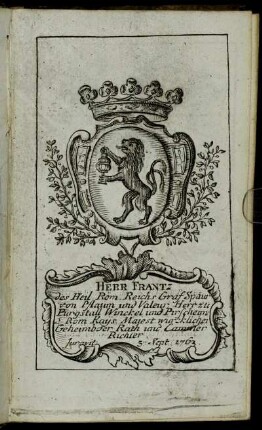 HERR FRANT:
des Heil. Rom. Reichs Graf Spaur
von Pflaum und Valeur, Herr zu
Purgstall Winckel und
Rom. Kays. Majest. würcklicher
Geheimbder Rath und Cammer
Richter
Juravit 5. Sept. 1763